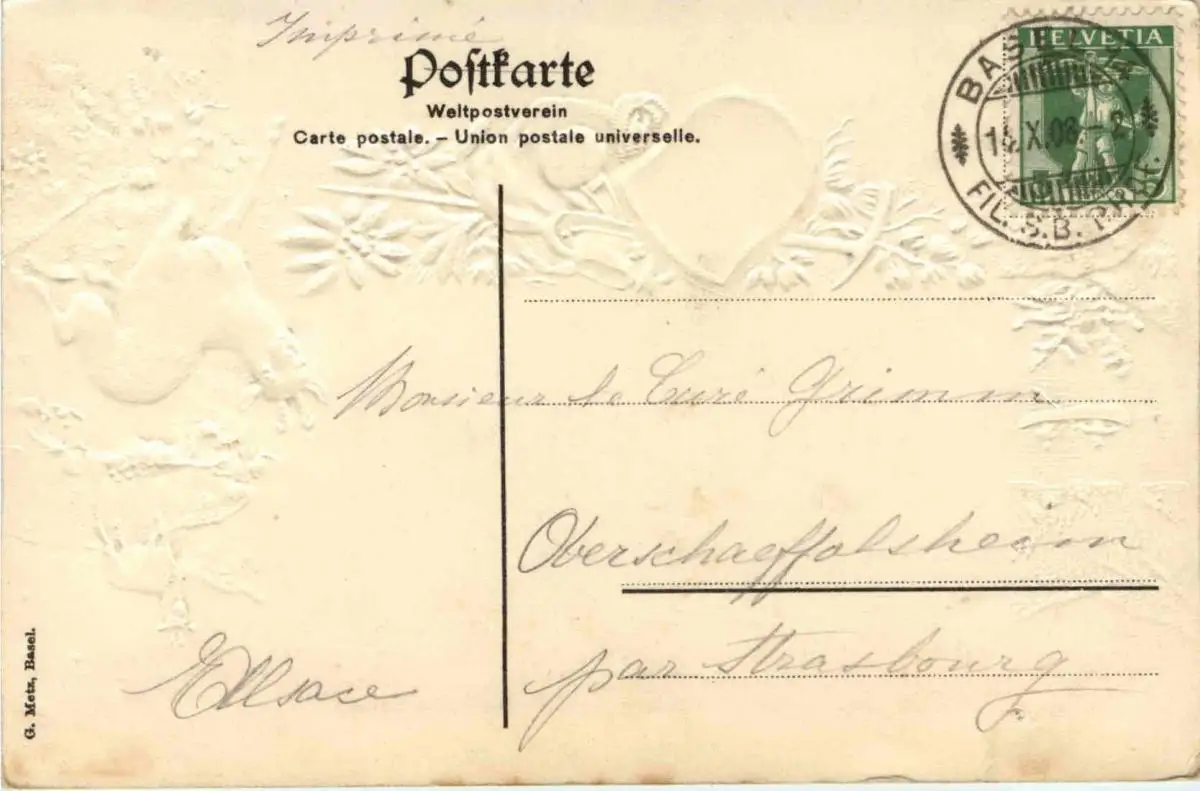 Imprimé
Postkarte
Weltpostverein
Carte postale. – Union postale universelle.
HELVETIA
BASEL
FIL. S.B.
Monsieur le Curé Grimm
Oberschaeffolsheim
par Strasbourg
Elsace
G. Metz, Basel.